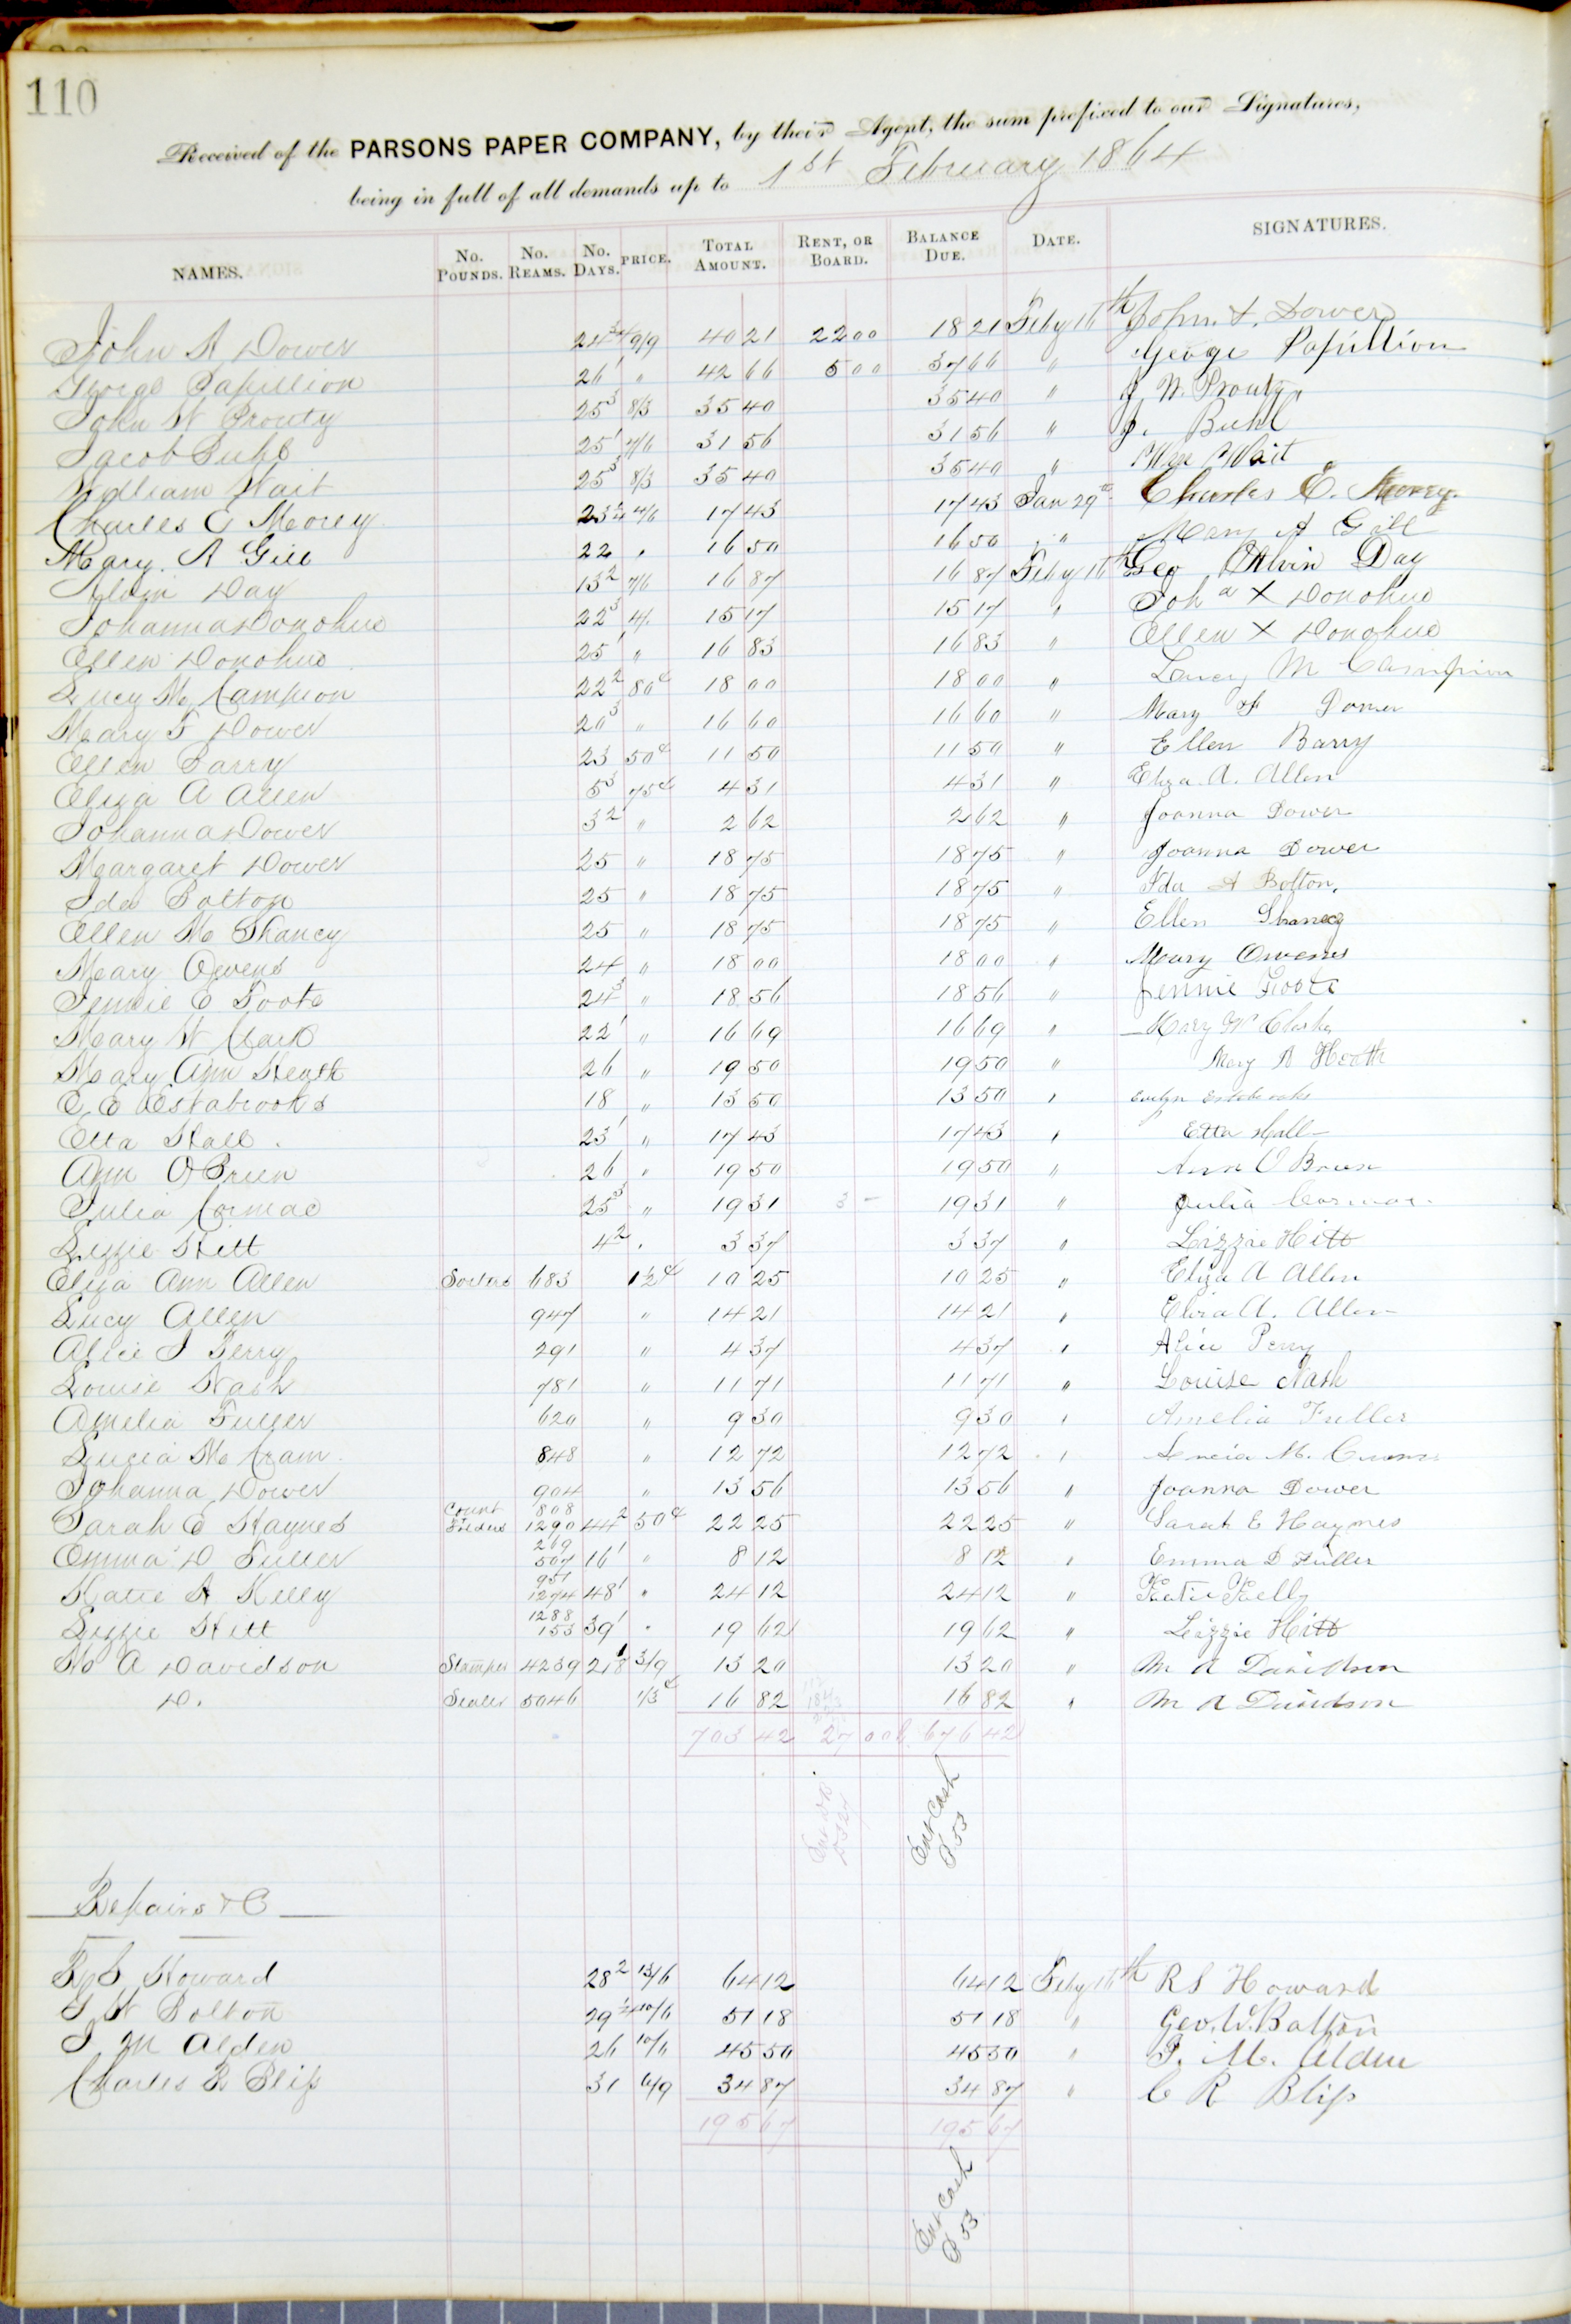 110
Received of the PARSONS PAPER COMPANY, by their Agent, the sum prefixed to our Signatures,
being in full of all demands up to 1st February 1864
NAMES. No. POUNDS. No. REAMS. No. DAYS. PRICE. TOTAL AMOUNT. RENT, OR BOARD. BALANCE DUE. DATE. SIGNATURES.
John A Dower 24 3/4 9/9 40 21 22 00 18 21 Feby 16th John A. Dower
George Papillion 26 1 " 42 66 5 00 37 66 " George Papillion
John W Prouty 25 3 8/3 35 40 35 40 " J W. Prouty
Jacob Buhl 25 1 7/6 31 56 31 56 " J. Buhl
William Wait 25 3 8/3 35 40 35 40 " Wm Wait
Charles E Morey 23 2/4 4/6 17 43 17 43 Jan 29th Charles E. Morey.
Mary A Gill 22 " 16 50 16 50 " Mary A Gill
Alvin Day 13 2 7/6 16 87 16 87 Feby 16th Geo Alvin Day
Johanna Donohue 22 3 4/. 15 17 15 17 " Joh a X Donohue
Ellen Donohue 25 1 " 16 83 16 83 " Ellen X Donohue
Lucy M Campion 22 2 80c 18 00 18 00 " Lucy M Campion
Mary F Dower 20 3 " 16 60 16 60 " Mary F Dower
Ellen Barry 23 50c 11 50 11 50 " Ellen Barry
Eliza A Allen 5 3 75c 4 31 4 31 " Eliza A. Allen
Johanna Dower 3 2 " 2 62 2 62 " Joanna Dower
Margaret Dower 25 " 18 75 18 75 " Joanna Dower
Ida Bolton 25 " 18 75 18 75 " Ida A Bolton.
Ellen M Shancy 25 " 18 75 18 75 " Ellen Shancy
Mary Owens 24 " 18 00 18 00 " Mary Owens
Jennie E Foote 24 3 " 18 56 18 56 " Jennie Foote
Mary W Clark 22 1 " 16 69 16 69 " Mary W Clark
Mary Ann Heath 26 " 19 50 19 50 " Mary A Heath
E. E Estabrooks 18 " 13 50 13 50 " Evelyn Estabrooks
Etta Hall. 23 1 " 17 43 17 43 " Etta Hall
Ann O'Brien 26 " 19 50 19 50 " Ann O Brien
Julia Cormac 25 3 " 19 31 3 — 19 31 " Julia Cormac
Lizzie Hitt 4 2 " 3 37 3 37 " Lizzie Hitt
Eliza Ann Allen Sorters 683 1½c 10 25 10 25 " Eliza A Allen
Lucy Allen 947 " 14 21 14 21 " Eliza A. Allen
Alice J Perry 291 " 4 37 4 37 " Alice Perry
Louise Nash 781 " 11 71 11 71 " Louise Nash
Amelia Fuller 620 " 9 30 9 30 " Amelia Fuller
Lucia M Cram 848 " 12 72 12 72 " Lucia M. Cram
Johanna Dower 904 " 13 56 13 56 " Joanna Dower
Count 808
Sarah E Haynes Folders 1290 44 2 50c 22 25 22 25 " Sarah E Haynes
269
Emma D Fuller 507 16 1 " 8 12 8 12 " Emma D Fuller
951
Katie A Kelly 1274 48 1 " 24 12 24 12 " Katie Kelly
1288
Lizzie Hitt 153 39 1 " 19 62 19 62 " Lizzie Hitt
M A Davidson Stamper 4239 3/9 13 20 13 20 " M A Davidson
D. Sealer 5046 1/3c 16 82 16 82 " M A Davidson
703 42 27 00 676 42
Ent Cash
P. 53
Repairs & C
R S Howard 28 2 13/6 64 12 64 12 Feby 16th R S Howard
G W Bolton 29 1/4 10/6 51 18 51 18 " Geo. W. Bolton
P M Alden 26 10/6 45 50 45 50 " P. M. Alden
Charles R Bliss 31 6/9 34 87 34 87 " C R Bliss
195 67 195 67
Ent Cash
P 53